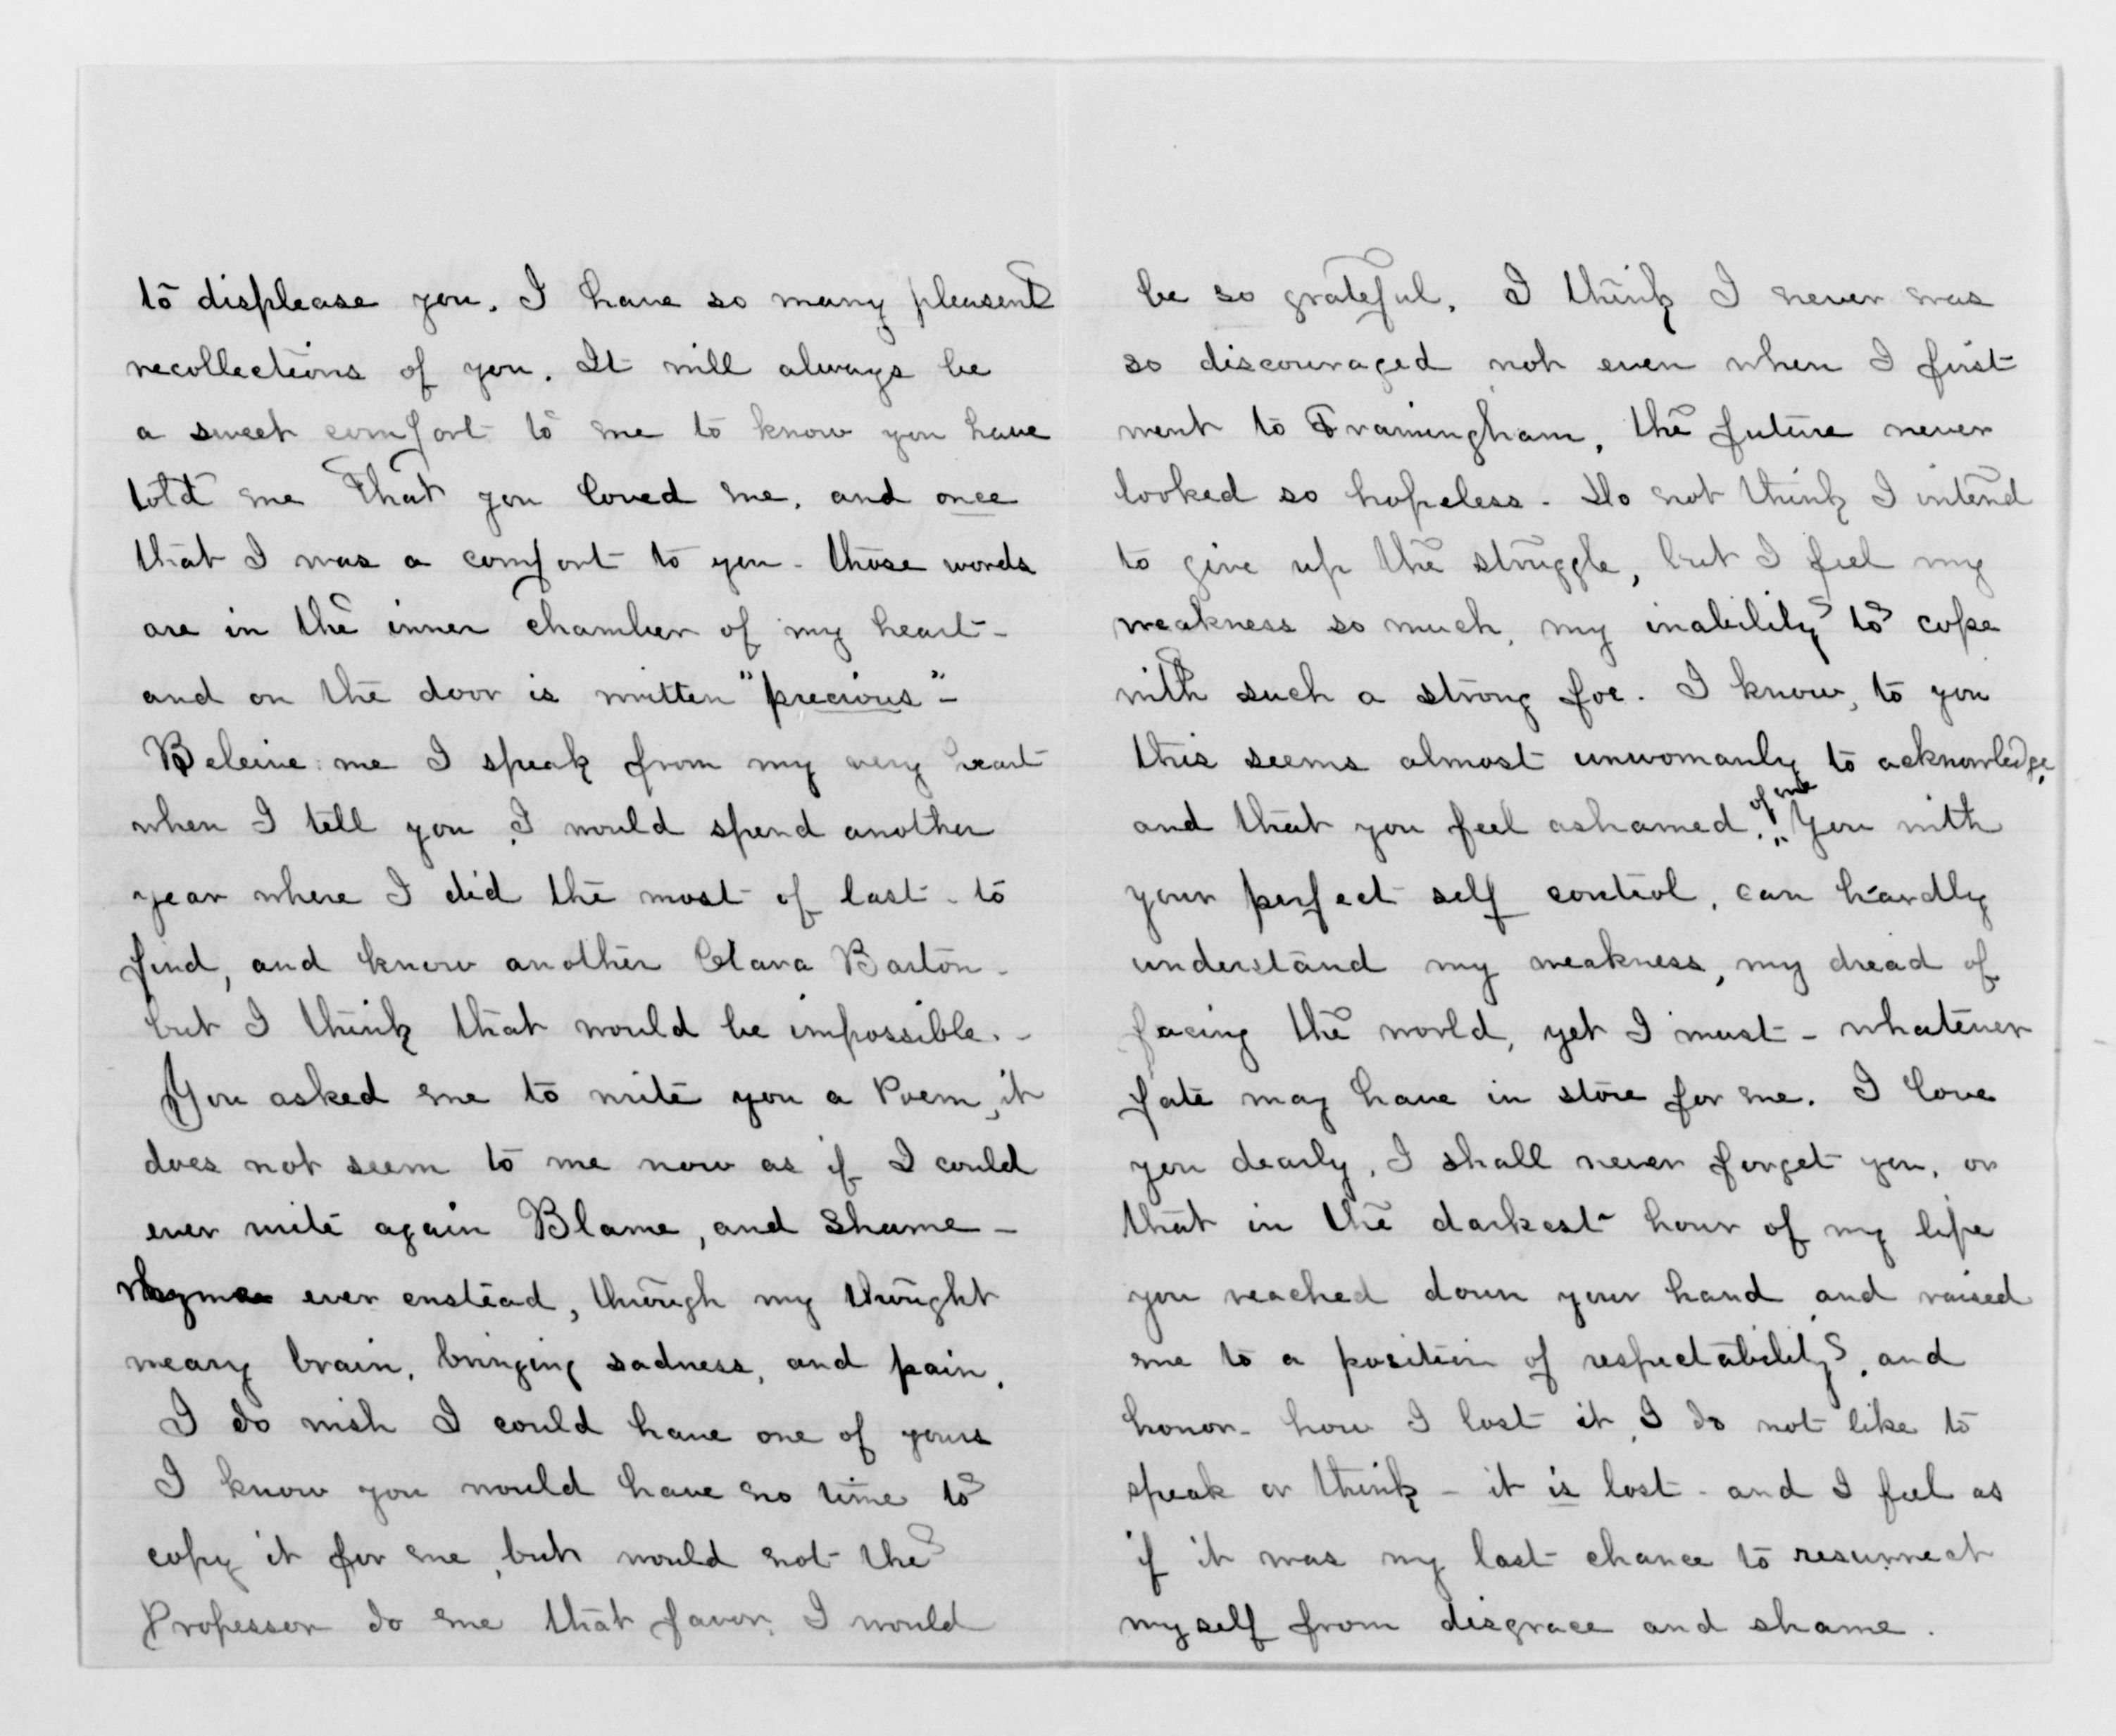 to displease you. I have so many pleasent
recollections of you. It will always be
a sweet comfort to me to know you have
told me that you loved me, and once
that I was a comfort to you - those words
are in the inner chamber of my heart -
and on the door is written "precious" -
Beleive me I speak from my very heart
when I tell you, I would spend another
year where I did the most of last - to
find, and know another Clara Barton -
but I think that would be impossible. -
You asked me to write you a Poem, it
does not seem to me now as if I could
ever write again Blame, and Shame -
rhymes ever enstead, through my thought
weary brain, bringing sadness, and pain.
I do wish I could have one of yours
I know you would have no time to
copy it for me, but would not the
Professor do me that favor. I would
be so grateful. I think I never was
so discouraged not even when I first
went to Framingham, the future never
looked so hopeless - Do not think I intend
to give up the struggle, but I feel my
weakness so much, my inability to cope
with such a strong foe. I know, to you
this seems almost unwomanly to acknowledge,
and that you feel ashamed of me. You with
your perfect self control, can hardly
understand my weakness, my dread of
facing the world, yet I must - whatever
fate may have in store for me. I love
you dearly, I shall never forget you, or
that in the darkest hour of my life
you reached down your hand, and raised
me to a position of respectability, and
honor - how I lost it, I do not like to
speak or think - it is lost - and I feel as
if it was my last chance to resurrect
myself from disgrace and shame.